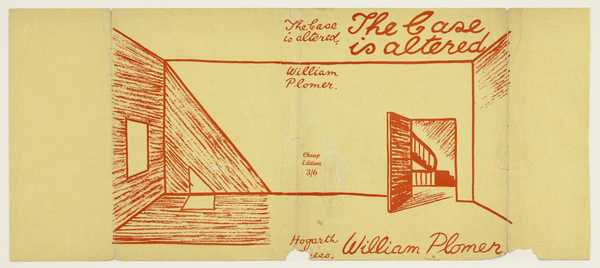 The Case
is altered.
William
Plomer.
Cheap
Edition
3/6
Hogarth
The Case
is altered
William Plomer